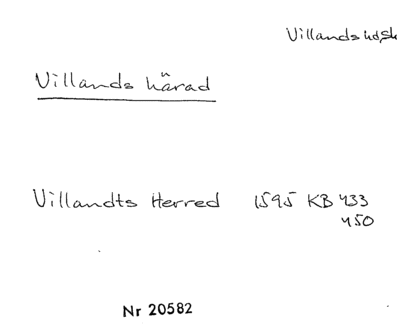 Villands hd, Sk
Villands härad
Villandts Herred 1595 KB 433
450
Nr 20582